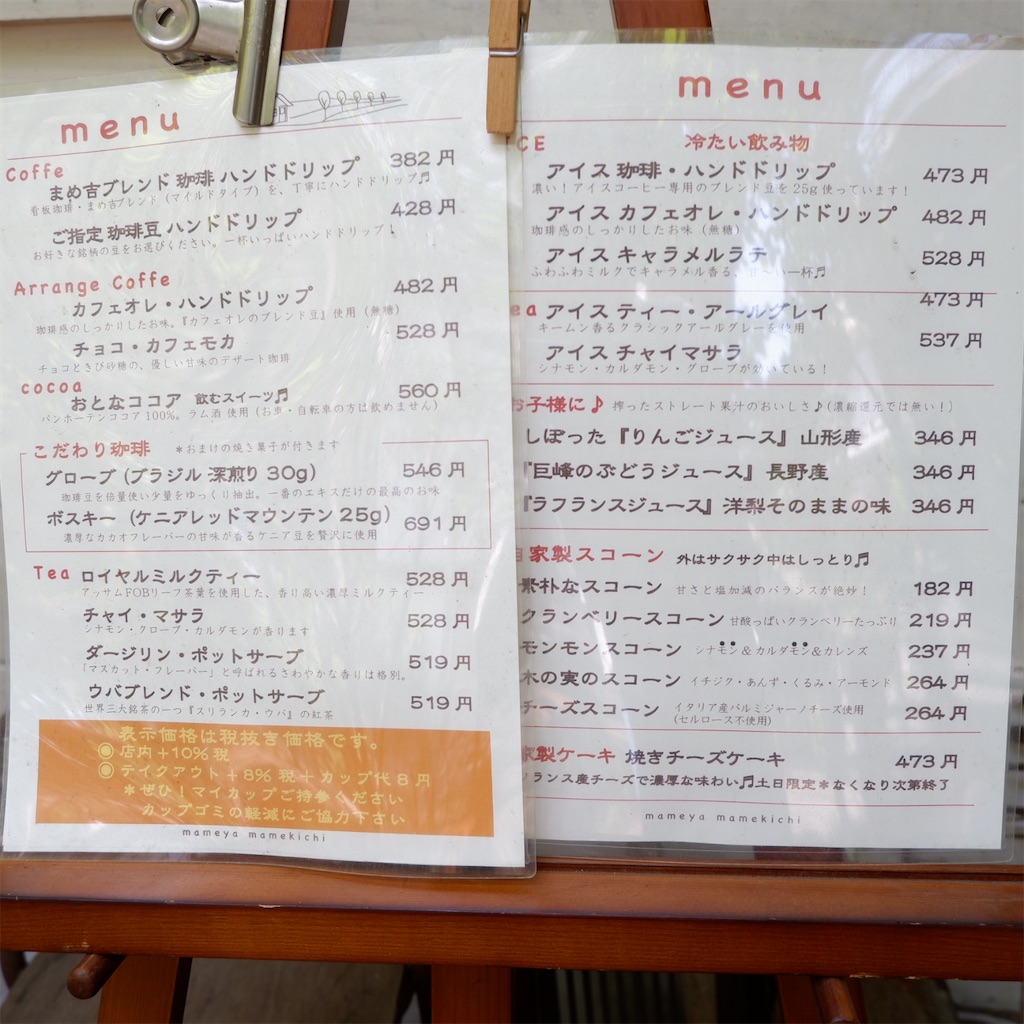 menu
Coffe
まめ吉ブレンド 珈琲 ハンドドリップ 382 円
看板珈琲・まめ吉ブレンド（マイルドタイプ）を、丁寧にハンドドリップ♬
ご指定 珈琲豆 ハンドドリップ 428 円
お好きな銘柄の豆をお選びください。一杯いっぱいハンドドリップ！
Arrange Coffe
カフェオレ・ハンドドリップ 482 円
珈琲感のしっかりしたお味。『カフェオレのブレンド豆』使用（無糖）
チョコ・カフェモカ 528 円
チョコときび砂糖の、優しい甘味のデザート珈琲
cocoa
おとなココア 飲むスイーツ♬ 560 円
バンホーテンココア 100%。ラム酒 使用（お車・自転車の方は飲めません）
こだわり珈琲 ＊おまけの焼き菓子が付きます
グローブ (ブラジル 深煎り 30g) 546 円
珈琲豆を倍量使い少量をゆっくり抽出。一番のエキスだけの最高のお味
ボスキー (ケニアレッドマウンテン 25g) 691 円
濃厚なカカオフレーバーの甘味が香るケニア豆を贅沢に使用
Tea ロイヤルミルクティー 528 円
アッサムFOBリーフ茶葉を使用した、香り高い濃厚ミルクティー
チャイ・マサラ 528 円
シナモン・クローブ・カルダモンが香ります
ダージリン・ポットサーブ 519 円
「マスカット・フレーバー」と呼ばれるさわやかな香りは格別。
ウバブレンド・ポットサーブ 519 円
世界三大銘茶の一つ『スリランカ・ウバ』の紅茶
表示価格は税抜き価格です。
◉ 店内＋10% 税
◉ テイクアウト＋8% 税＋カップ代 8 円
＊ぜひ！マイカップご持参ください
カップゴミの軽減にご協力下さい
mameya mamekichi
menu
CE 冷たい飲み物
アイス 珈琲・ハンドドリップ 473 円
濃い！アイスコーヒー専用のブレンド豆を 25g 使っています！
アイス カフェオレ・ハンドドリップ 482 円
珈琲感のしっかりしたお味（無糖）
アイス キャラメルラテ 528 円
ふわふわミルクでキャラメル香る、甘〜い一杯♬
ea アイス ティー・アールグレイ 473 円
キームン香るクラシックアールグレーを使用
アイス チャイマサラ 537 円
シナモン・カルダモン・グローブが効いている！
お子様に♪ 搾ったストレート果汁のおいしさ♪(濃縮還元では無い！)
しぼった『りんごジュース』山形産 346 円
『巨峰のぶどうジュース』長野産 346 円
『ラフランスジュース』洋梨そのままの味 346 円
自家製スコーン 外はサクサク中はしっとり♬
素朴なスコーン 甘さと塩加減のバランスが絶妙！ 182 円
クランベリースコーン 甘酸っぱいクランベリーたっぷり 219 円
モンモンスコーン シナモン＆カルダモン＆カレンズ 237 円
木の実のスコーン イチジク・あんず・くるみ・アーモンド 264 円
チーズスコーン イタリア産パルミジャーノチーズ使用 264 円
(セルロース不使用)
家製ケーキ 焼きチーズケーキ 473 円
フランス産チーズで濃厚な味わい♬土日限定＊なくなり次第終了
mameya mamekichi